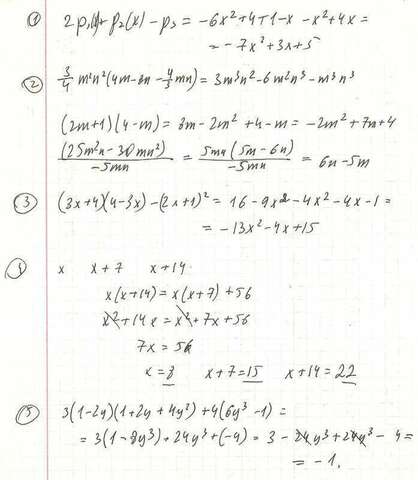 ① 2p₁(x)+p₂(x)-p₃ = -6x²+4+1-x-x²+4x=
= -7x²+3x+5
② 3/4 m²n²(4m-8n-4/3mn)=3m³n²-6m²n³-m³n³
(2m+1)(4-m)=8m-2m²+4-m=-2m²+7m+4
(25m²n-30mn²)/-5mn = 5mn(5m-6n)/-5mn = 6n-5m
③ (3x+4)(4-3x)-(2x+1)²=16-9x²-4x²-4x-1=
= -13x²-4x+15
x x+7 x+14
x(x+14)=x(x+7)+56
x²+14x=x²+7x+56
7x=56
x=8 x+7=15 x+14=22
⑤ 3(1-2y)(1+2y+4y²)+4(6y³-1)=
=3(1-8y³)+24y³+(-4)=3-24y³+24y³-4=
= -1.